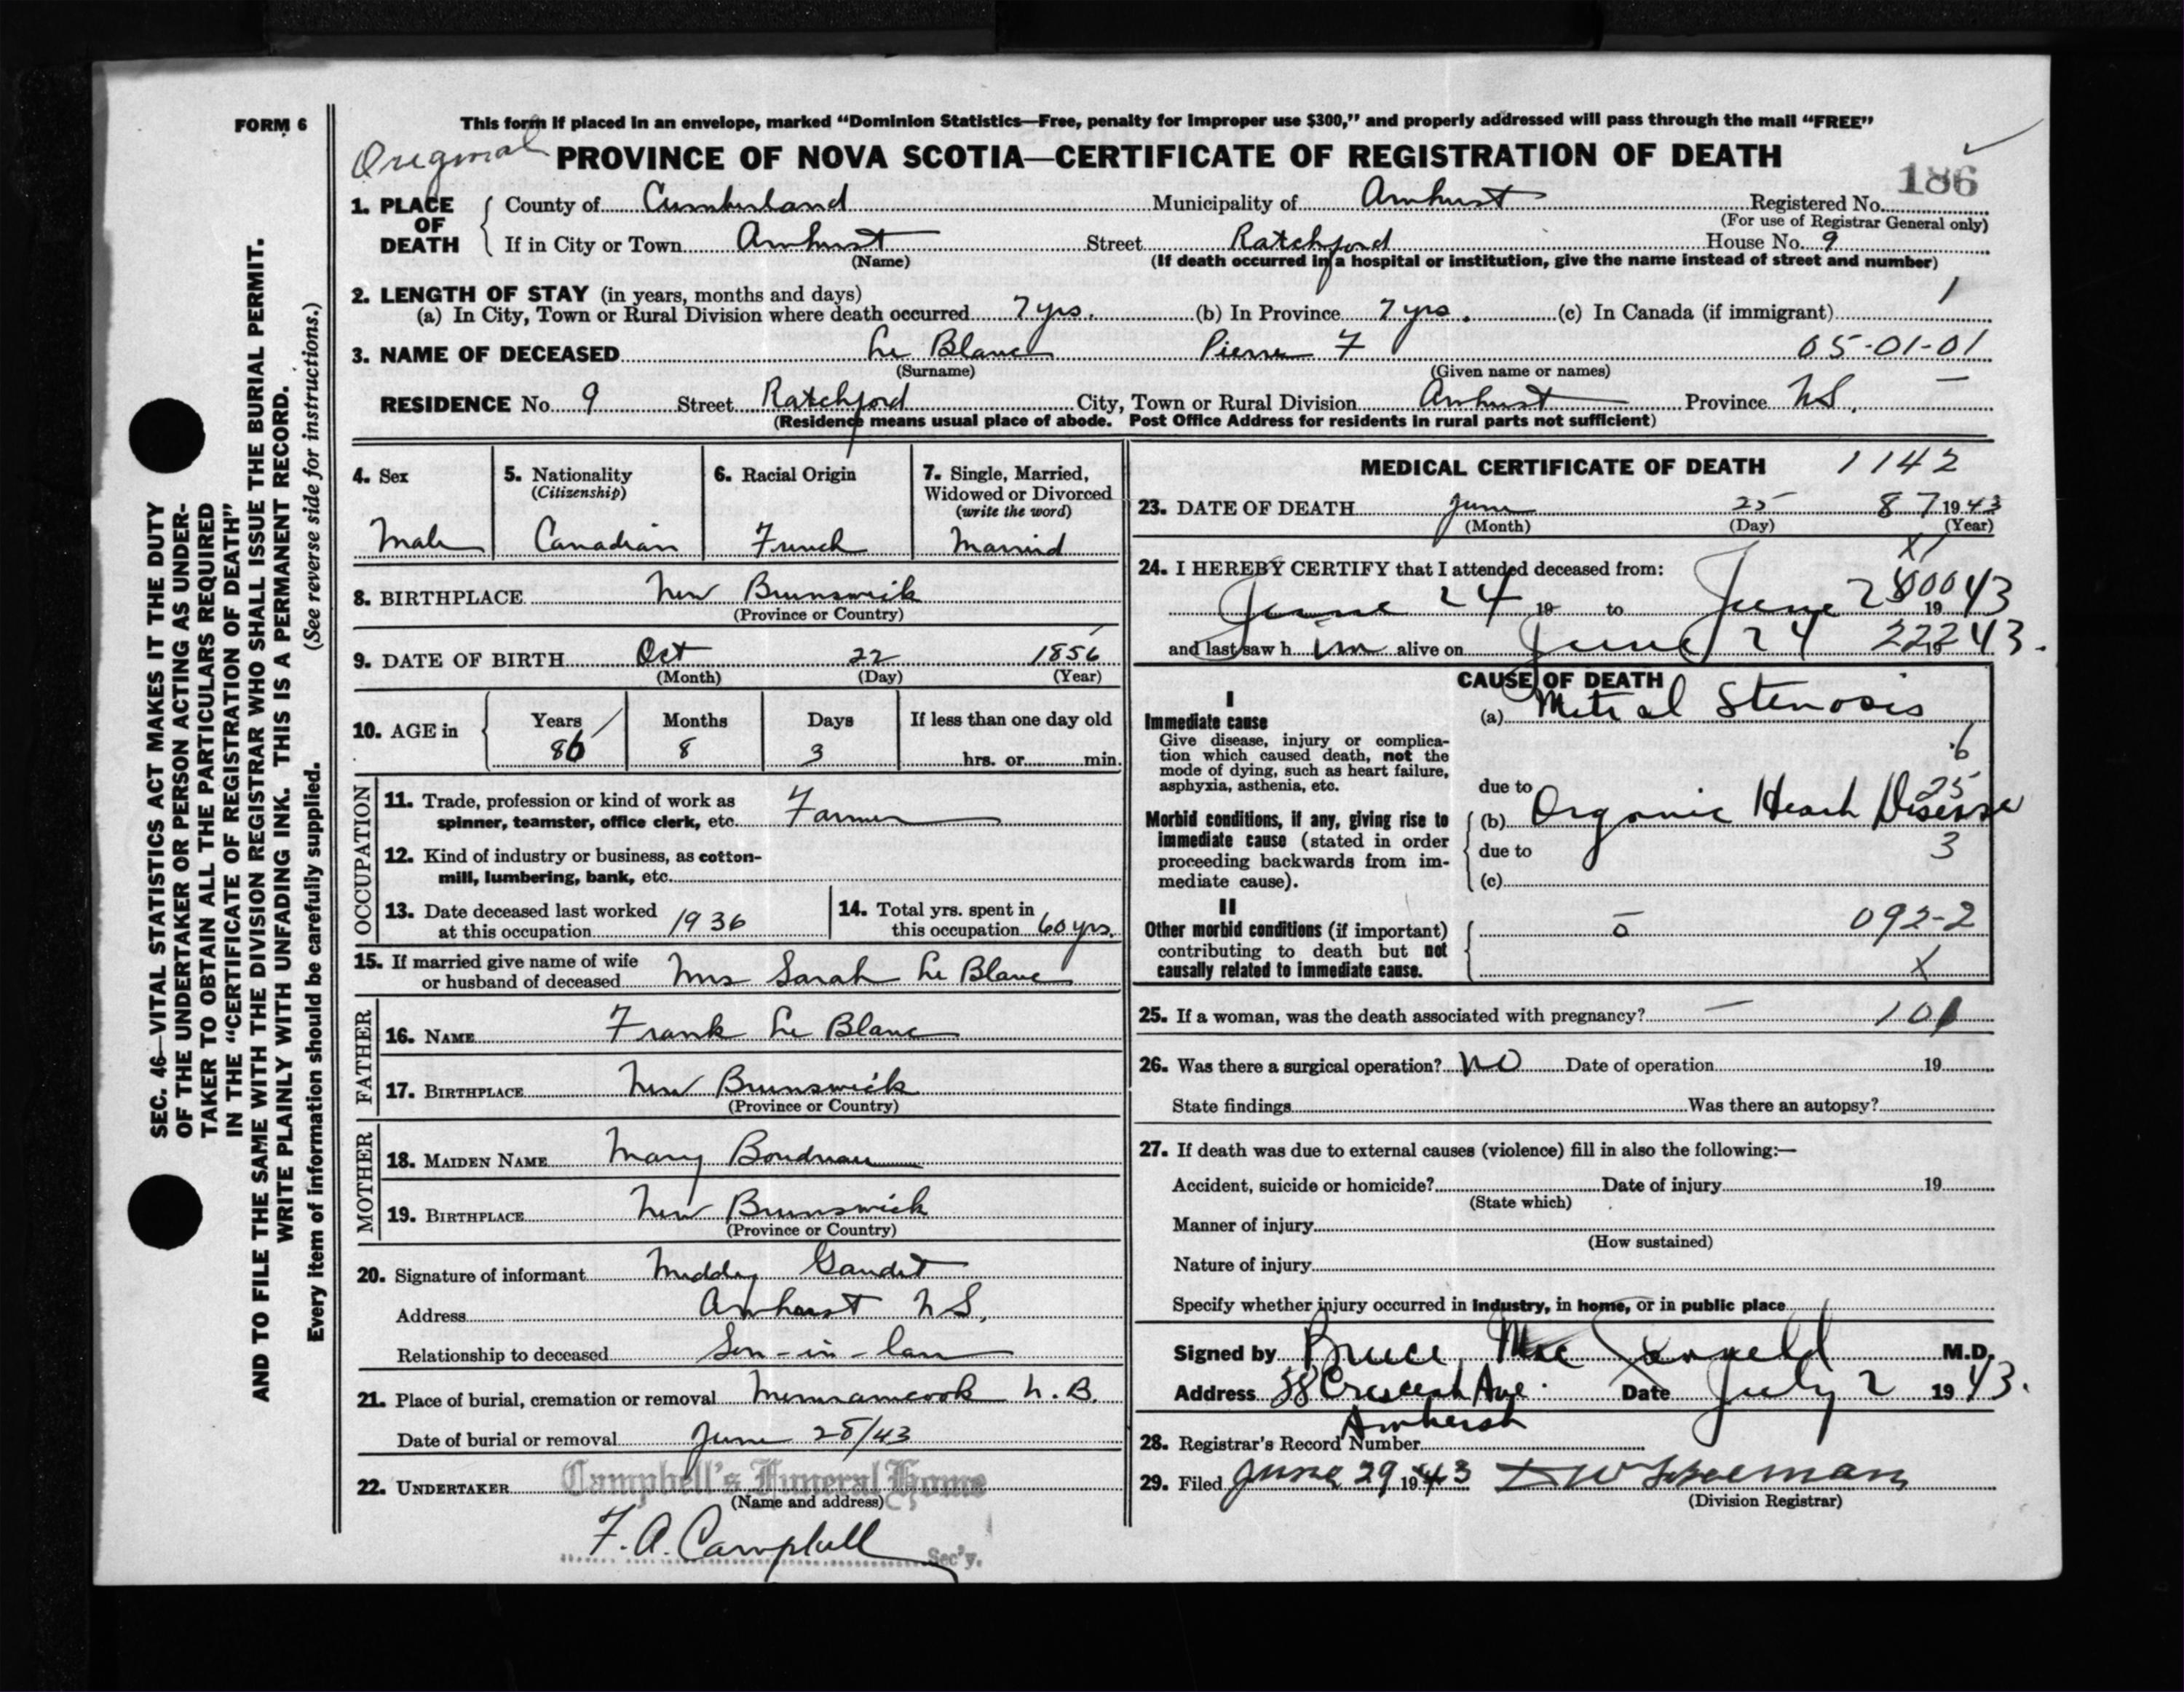 FORM 6
This form if placed in an envelope, marked “Dominion Statistics—Free, penalty for improper use $300,” and properly addressed will pass through the mail “FREE”
Original PROVINCE OF NOVA SCOTIA—CERTIFICATE OF REGISTRATION OF DEATH
186
1. PLACE OF DEATH { County of Cumberland Municipality of Amherst Registered No.
(For use of Registrar General only)
If in City or Town Amherst Street Ratchford House No. 9
(Name) (If death occurred in a hospital or institution, give the name instead of street and number)
2. LENGTH OF STAY (in years, months and days) 1
(a) In City, Town or Rural Division where death occurred 7 yrs. (b) In Province 7 yrs. (c) In Canada (if immigrant)
3. NAME OF DECEASED Le Blanc Pierre F 05-01-01
(Surname) (Given name or names)
RESIDENCE No. 9 Street Ratchford City, Town or Rural Division Amherst Province N.S. —
(Residence means usual place of abode. Post Office Address for residents in rural parts not sufficient)
4. Sex
Male
5. Nationality
(Citizenship)
Canadian
6. Racial Origin
French
7. Single, Married,
Widowed or Divorced
(write the word)
Married
8. BIRTHPLACE New Brunswick
(Province or Country)
9. DATE OF BIRTH Oct 22 1856
(Month) (Day) (Year)
10. AGE in { Years Months Days If less than one day old
86 8 3 hrs. or min.
OCCUPATION
11. Trade, profession or kind of work as
spinner, teamster, office clerk, etc. Farmer
12. Kind of industry or business, as cotton-
mill, lumbering, bank, etc.
13. Date deceased last worked
at this occupation 1936
14. Total yrs. spent in
this occupation 60 yrs.
15. If married give name of wife
or husband of deceased Mrs Sarah Le Blanc
FATHER
16. NAME Frank Le Blanc
17. BIRTHPLACE New Brunswick
(Province or Country)
MOTHER
18. MAIDEN NAME Mary Boudreau
19. BIRTHPLACE New Brunswick
(Province or Country)
20. Signature of informant Gaudet
Address Amherst N.S.
Relationship to deceased Son-in-law
21. Place of burial, cremation or removal Memramcook N.B.
Date of burial or removal June 28/43
22. UNDERTAKER Campbell's Funeral Home
(Name and address)
F. A. Campbell Sec'y.
MEDICAL CERTIFICATE OF DEATH 1142
23. DATE OF DEATH June 25 87 1943
(Month) (Day) (Year)
24. I HEREBY CERTIFY that I attended deceased from: X1
June 24 19 to June 2 1943
and last saw him alive on June 24 222 1943.
CAUSE OF DEATH
I
Immediate cause
Give disease, injury or complica-
tion which caused death, not the
mode of dying, such as heart failure,
asphyxia, asthenia, etc.
(a) Mitral Stenosis
6
25
due to
Morbid conditions, if any, giving rise to
immediate cause (stated in order
proceeding backwards from im-
mediate cause).
(b) Organic Heart Disease
due to 3
(c)
II
Other morbid conditions (if important)
contributing to death but not
causally related to immediate cause.
092-2
X
25. If a woman, was the death associated with pregnancy? — 101
26. Was there a surgical operation? No Date of operation 19
State findings Was there an autopsy?
27. If death was due to external causes (violence) fill in also the following:—
Accident, suicide or homicide? Date of injury 19
(State which)
Manner of injury
(How sustained)
Nature of injury
Specify whether injury occurred in industry, in home, or in public place
Signed by Bruce MacDonald M.D.
Address 38 Crescent Ave. Date July 2 1943.
Amherst
28. Registrar's Record Number
29. Filed June 29 1943
(Division Registrar)
SEC. 46—VITAL STATISTICS ACT MAKES IT THE DUTY
OF THE UNDERTAKER OR PERSON ACTING AS UNDER-
TAKER TO OBTAIN ALL THE PARTICULARS REQUIRED
IN THE “CERTIFICATE OF REGISTRATION OF DEATH”
AND TO FILE THE SAME WITH THE DIVISION REGISTRAR WHO SHALL ISSUE THE BURIAL PERMIT.
WRITE PLAINLY WITH UNFADING INK. THIS IS A PERMANENT RECORD.
Every item of information should be carefully supplied. (See reverse side for instructions.)